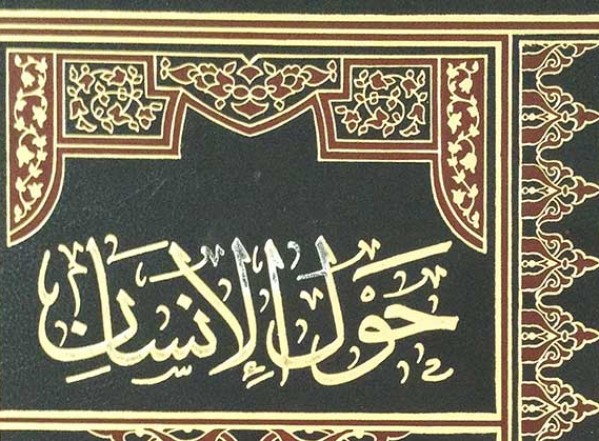 حَوْلَ الإِنسَانِ